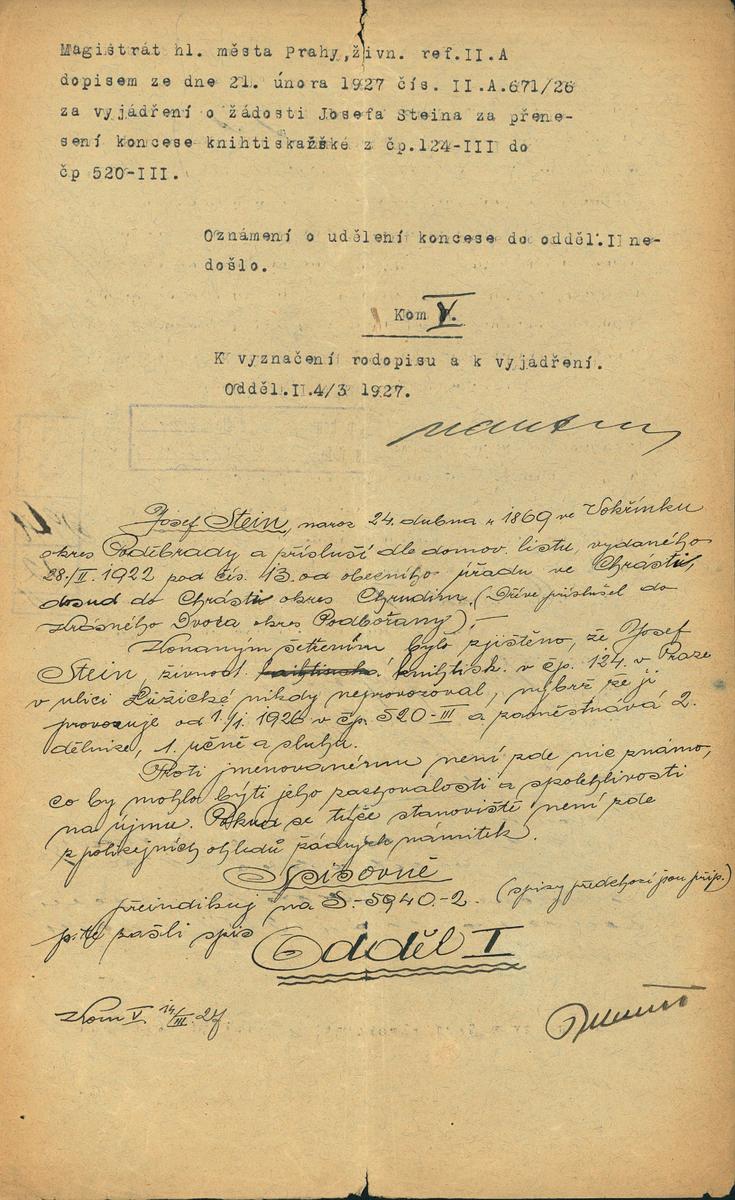 Magistrát hl. města Prahy, živn. ref. II. A
dopisem ze dne 21. února 1927 čís. II.A.671/26
za vyjádření o žádosti Josefa Steina za přene-
sení koncese knihtiskařské z čp.124-III do
čp 520-III.
Oznámení o udělení koncese do odděl.II ne-
došlo.
Kom V.
K vyznačení rodopisu a k vyjádření.
Odděl.II.4/3 1927.
Josef Stein, naroz 24. dubna r 1869 ve Vokřínku
okres Poděbrady a přísluší dle domov. listu, vydaného
28./II. 1922 pod čís. 13. od obecního úřadu ve Chrásti,
dosud do Chrásti okres Chrudim. (Dříve příslušel do
Krásného Dvora okres Podbořany).
Konaným šetřením bylo zjištěno, že Josef
Stein, živnost knihtisk. v čp. 124. v Praze
v ulici Lužické nikdy neprovozoval, nýbrž že ji
provozuje od 1./1. 1926 v čp. 520-III a zaměstnává 2.
dělníce, 1. učně a sluhu.
Proti jmenovanému není zde nic známo,
co by mohlo býti jeho zachovalosti a spolehlivosti
na újmu. Pokud se týče stanoviště není zde
z policejních ohledů žádných námitek.
Spisovně
přeindikuj na S-5940-2. (spisy předchozí jsou přip.)
p. té zašli spis
Odděl I
Kom V. 14/III. 27.